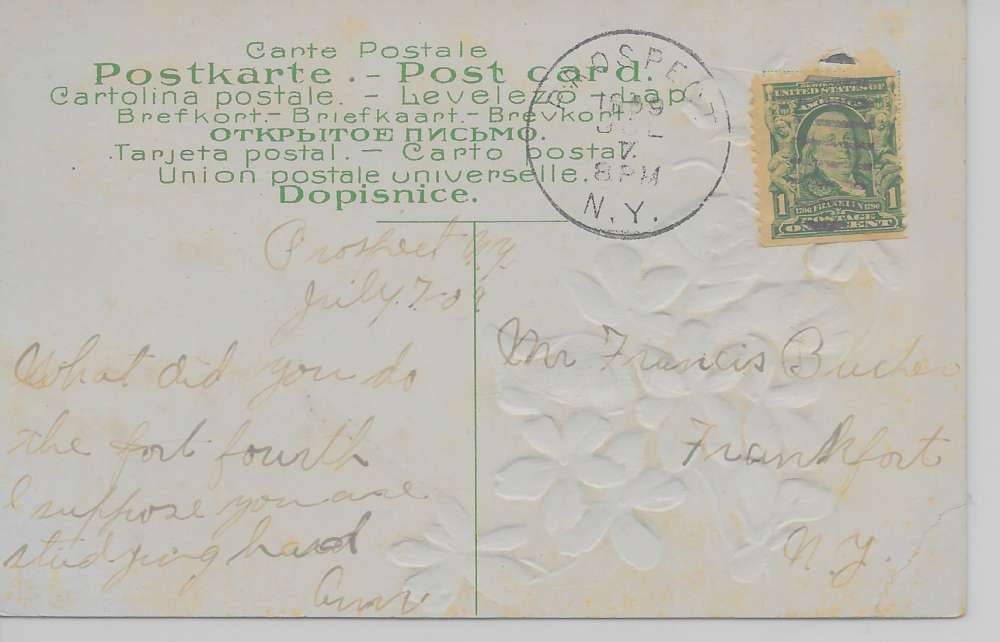 Carte Postale
Postkarte. - Post card.
Cartolina postale. - Levelező-Lap
Brefkort.- Briefkaart.- Brevkort.
ОТКРЫТОЕ ПИСЬМО.
Tarjeta postal. - Carto postal.
Union postale universelle.
Dopisnice.
PROSPECT
1909
JUL
7
8 PM
N.Y.
UNITED STATES OF
AMERICA
1 1
1706 FRANKLIN 1790
POSTAGE
ONE CENT
Prospect N.Y.
July. 7-09
What did you do
the fort fourth
I suppose you are
studying hard
Mr Francis Bucher
Frankfort
N.Y.